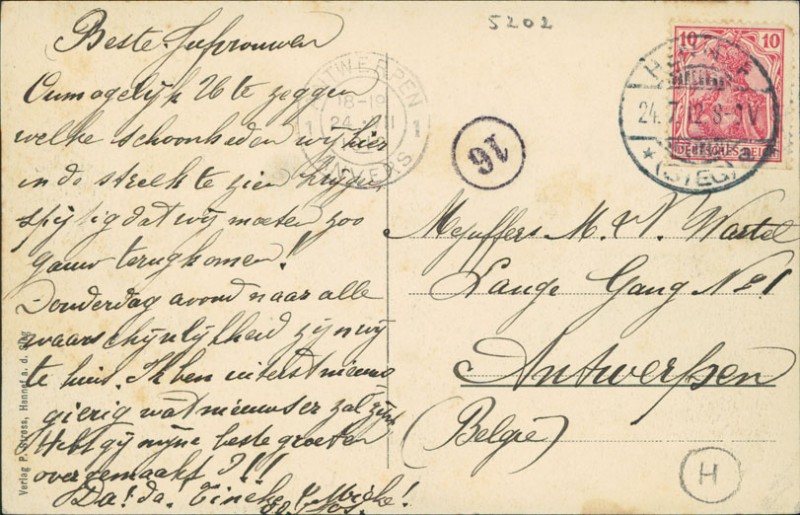 5202
Beste Jufvrouwen
Onmogelijk U te zeggen
welke schoonheden wij hier
in de streek te zien krijgen
spijtig dat wij moeten zoo
gauw terugkomen!
Donderdag avond naar alle
waarschijnlijkheid zijn wij
te huis. Ik ben uiterst nieuws
gierig wat nieuws er zal zijn.
Hebt gij mijne beste groeten
overgemaakt ?!!!
Da! da. Tineke
Verlag P. Stross, Hennef a. d. Sieg
ANTWERPEN
18-19
24
1 1
ANVERS
16
10 10
DEUTSCHES REICH
HENNEF
24.7.12.8-9V
* (SIEG) a
Mejuffers M. & V. Wartel
Lange Gang No 1
Antwerpen
(België)
H